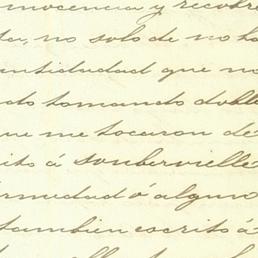 nocencia y recobre
ta, no solo de no ha
antidudad que no
do tomando doble
que me tocaron de
ito á Soubervielle
rmedad ó algun
tambien escrito á